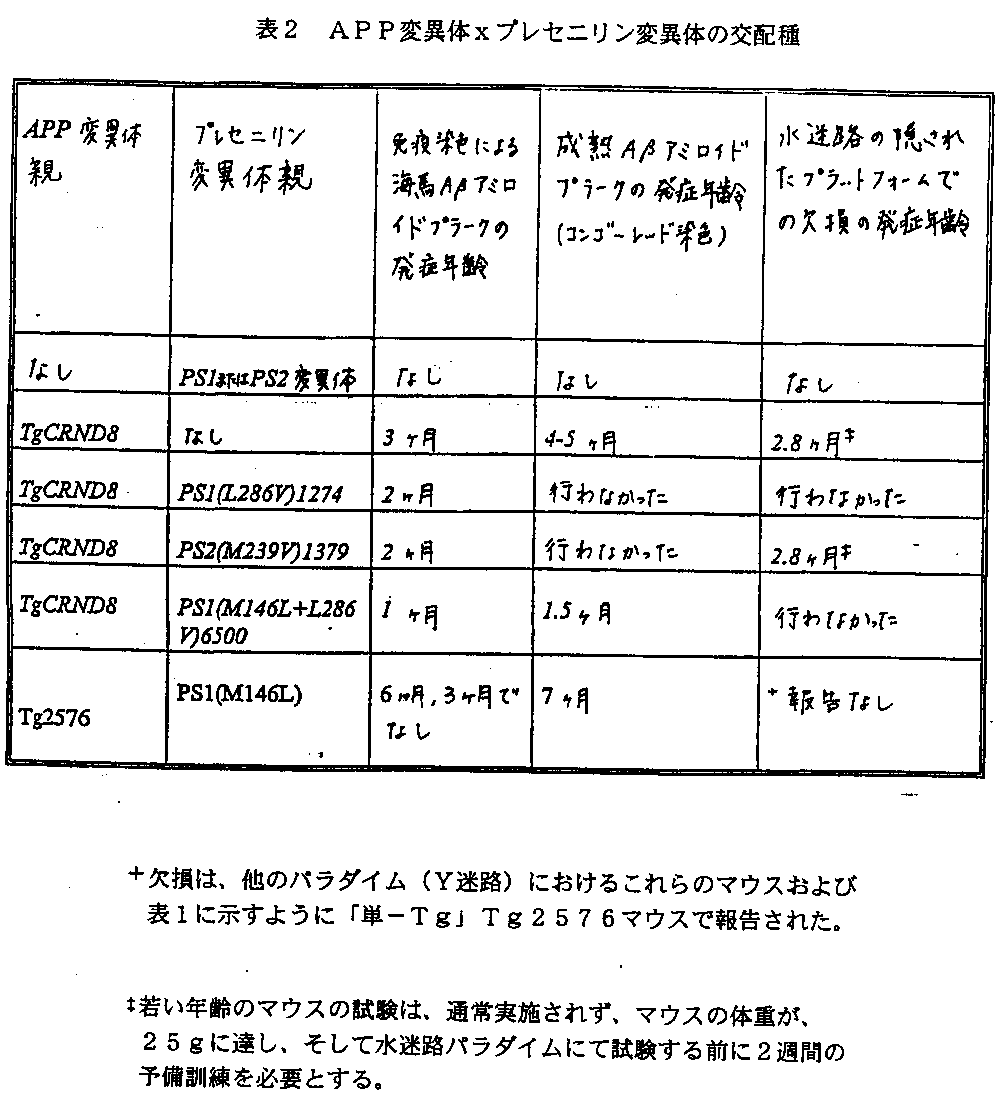 表2 APP変異体xプレセニリン変異体の交配種
APP 変異体
親
プレセニリン
変異体親
免疫染色による
海馬Aβアミロ
イドプラークの
発症年齢
成熟Aβアミロイド
プラークの発症年齢
(コンゴーレッド染色)
水迷路の隠され
たプラットフォームで
の欠損の発症年齢
なし
PS1またはPS2変異体
なし
なし
なし
TgCRND8
なし
3ヶ月
4-5ヶ月
2.8ヶ月‡
TgCRND8
PS1(L286V)1274
2ヶ月
行わなかった
行わなかった
TgCRND8
PS2(M239V)1379
2ヶ月
行わなかった
2.8ヶ月‡
TgCRND8
PS1(M146L+L286
V)6500
1ヶ月
1.5ヶ月
行わなかった
Tg2576
PS1(M146L)
6ヶ月,3ヶ月で
なし
7ヶ月
+報告なし
+欠損は、他のパラダイム(Y迷路)におけるこれらのマウスおよび
表1に示すように「単-Tg」Tg2576マウスで報告された。
‡若い年齢のマウスの試験は、通常実施されず、マウスの体重が、
25gに達し、そして水迷路パラダイムにて試験する前に2週間の
予備訓練を必要とする。